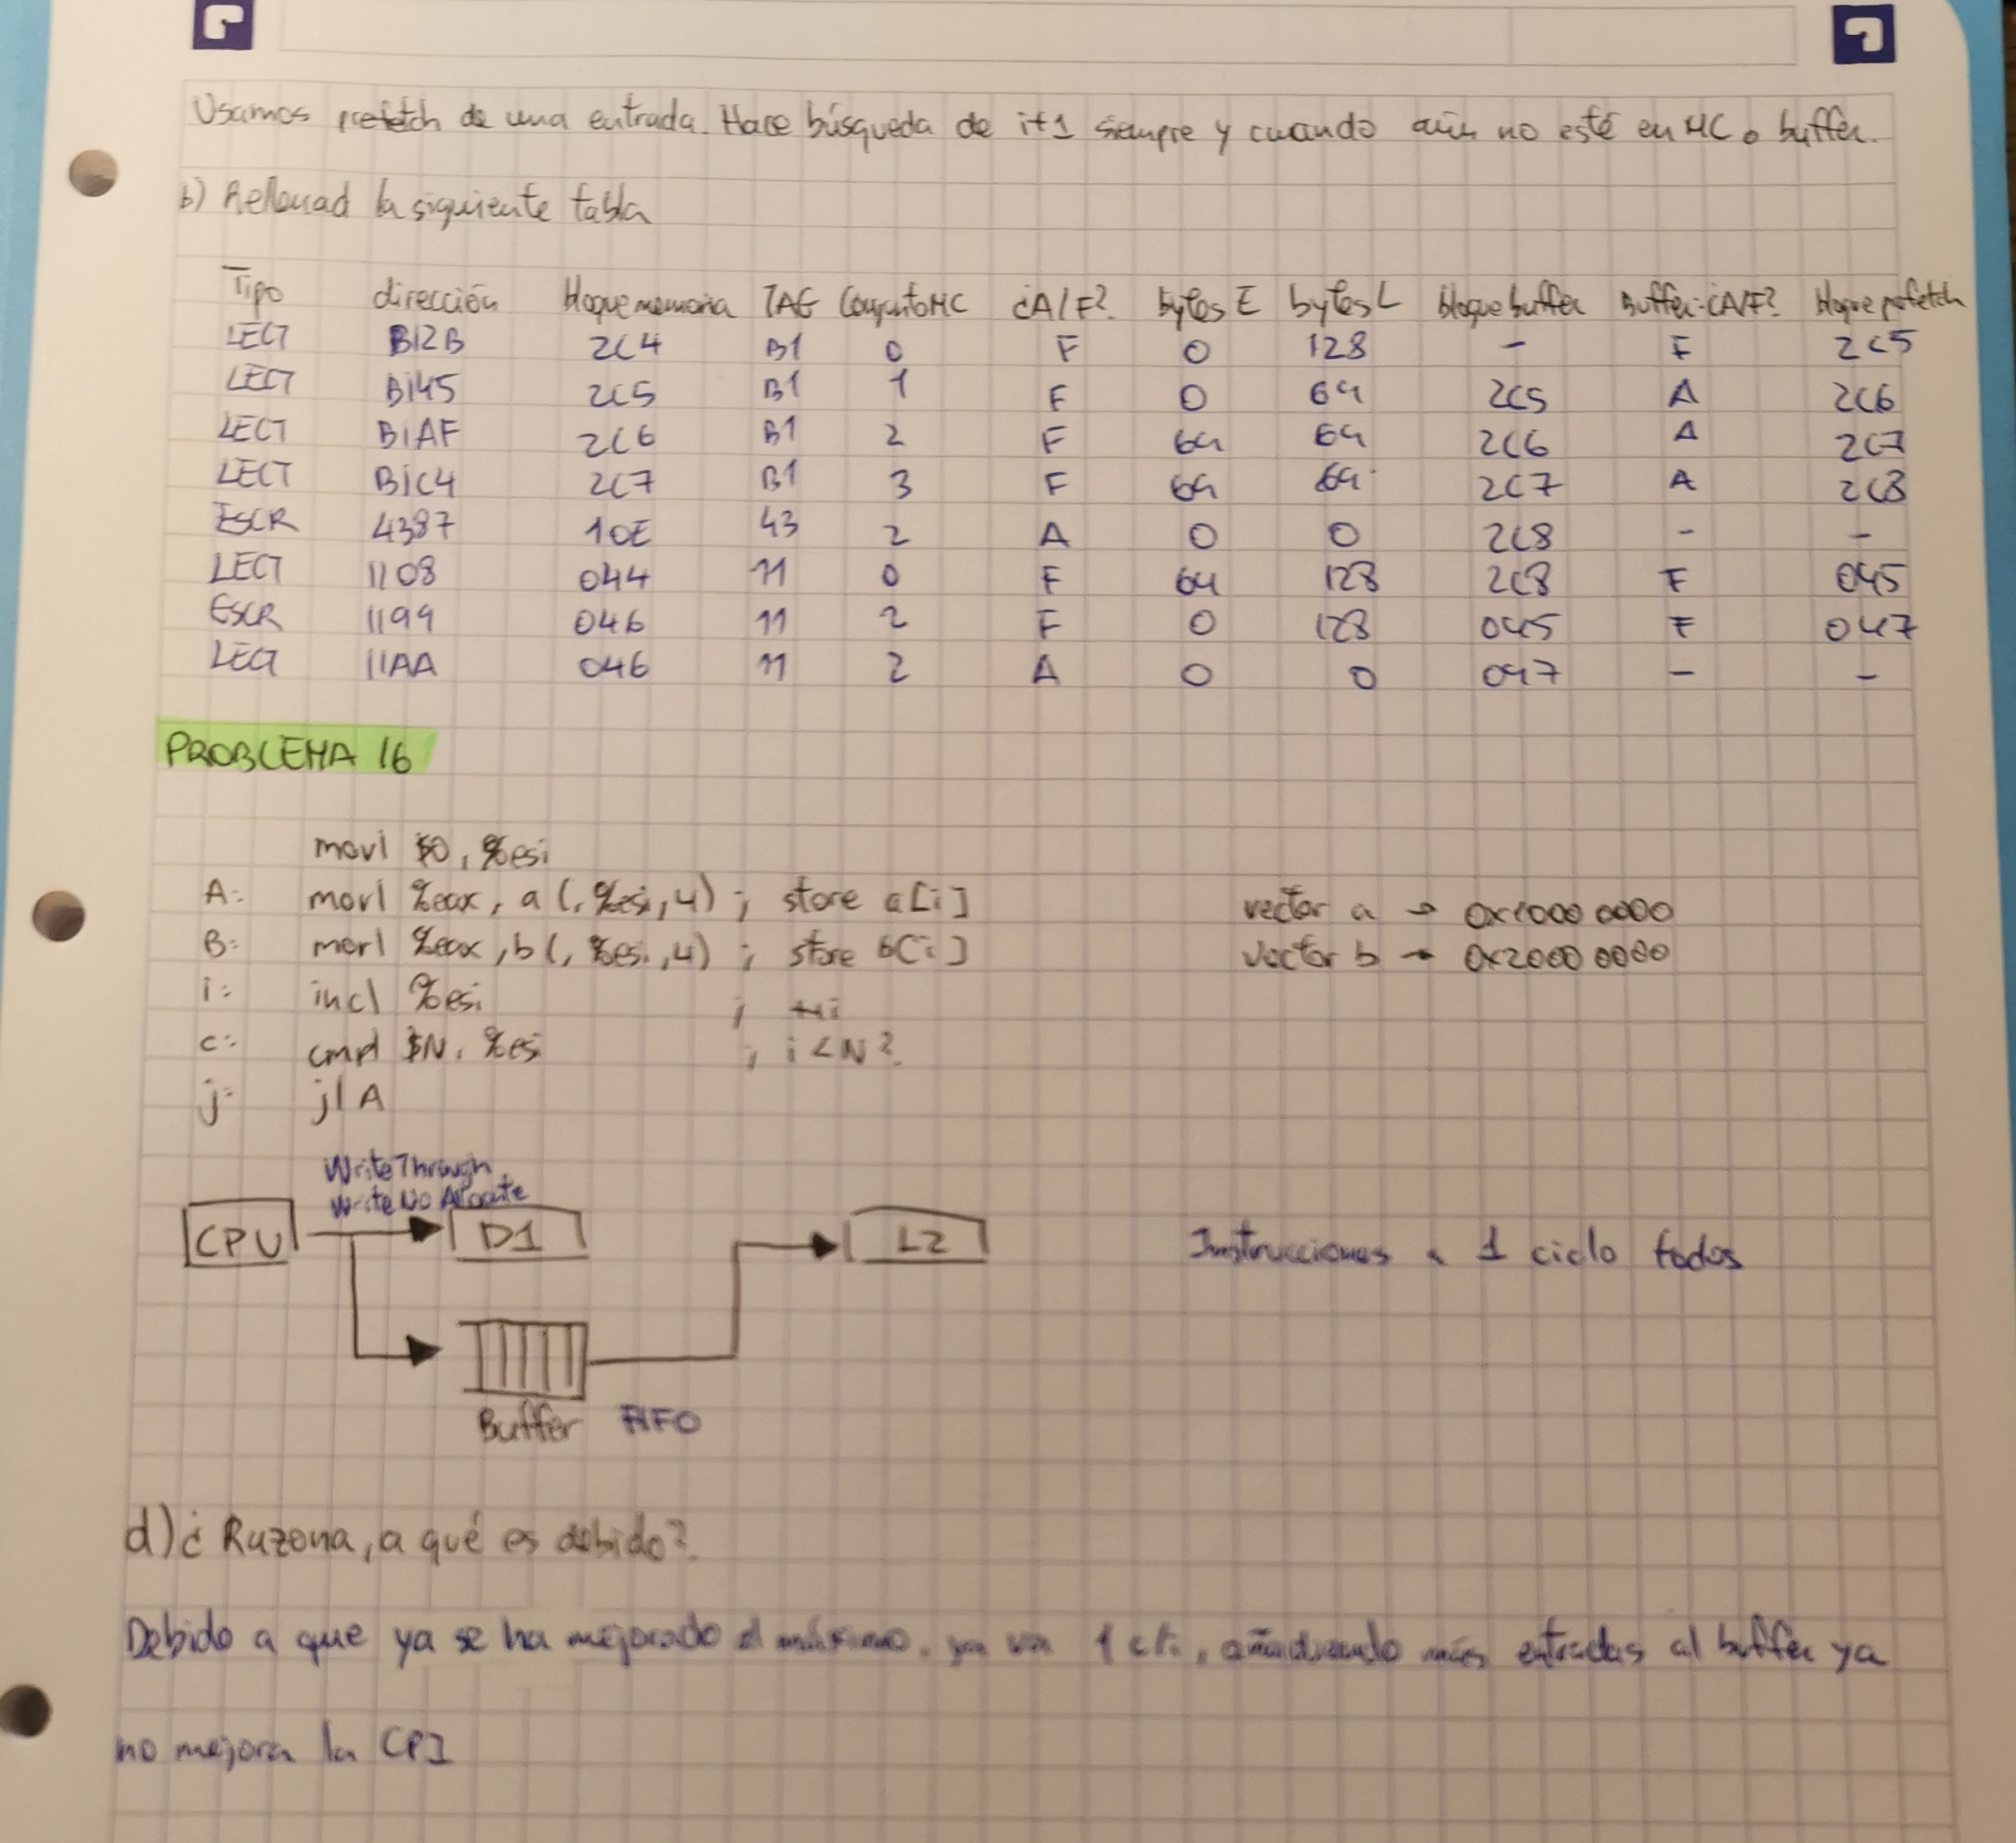 Usamos prefetch de una entrada. Hace búsqueda de i+1 siempre y cuando aún no esté en MC o buffer.
b) Rellenad la siguiente tabla
Tipo dirección bloque memoria TAG Conjunto MC ¿A/F? bytes E bytes L bloque buffer Buffer: ¿A/F? bloque prefetch
LECT B12B 2C4 B1 0 F 0 128 - F 2C5
LECT B145 2C5 B1 1 F 0 64 2C5 A 2C6
LECT B1AF 2C6 B1 2 F 64 64 2C6 A 2C7
LECT B1C4 2C7 B1 3 F 64 64 2C7 A 2C8
ESCR 4387 10E 43 2 A 0 0 2C8 - -
LECT 1108 044 11 0 F 64 128 2C8 F 045
ESCR 1199 046 11 2 F 0 128 045 F 047
LECT 11AA 046 11 2 A 0 0 047 - -
PROBLEMA 16
movl $0, %esi
A: movl %eax, a(, %esi, 4) ; store a[i] vector a → 0x1000 0000
B: movl %eax, b(, %esi, 4) ; store b[i] vector b → 0x2000 0000
i: incl %esi ; ++i
c: cmpl $N, %esi ; i < N?
j: jl A
Write Through
Write No Allocate
CPU D1 L2 Instrucciones a 1 ciclo todos
Buffer FIFO
d) ¿ Razona, a qué es debido?
Debido a que ya se ha mejorado al máximo, ya va 1 , añadiendo más entradas al buffer ya
no mejora la CPI